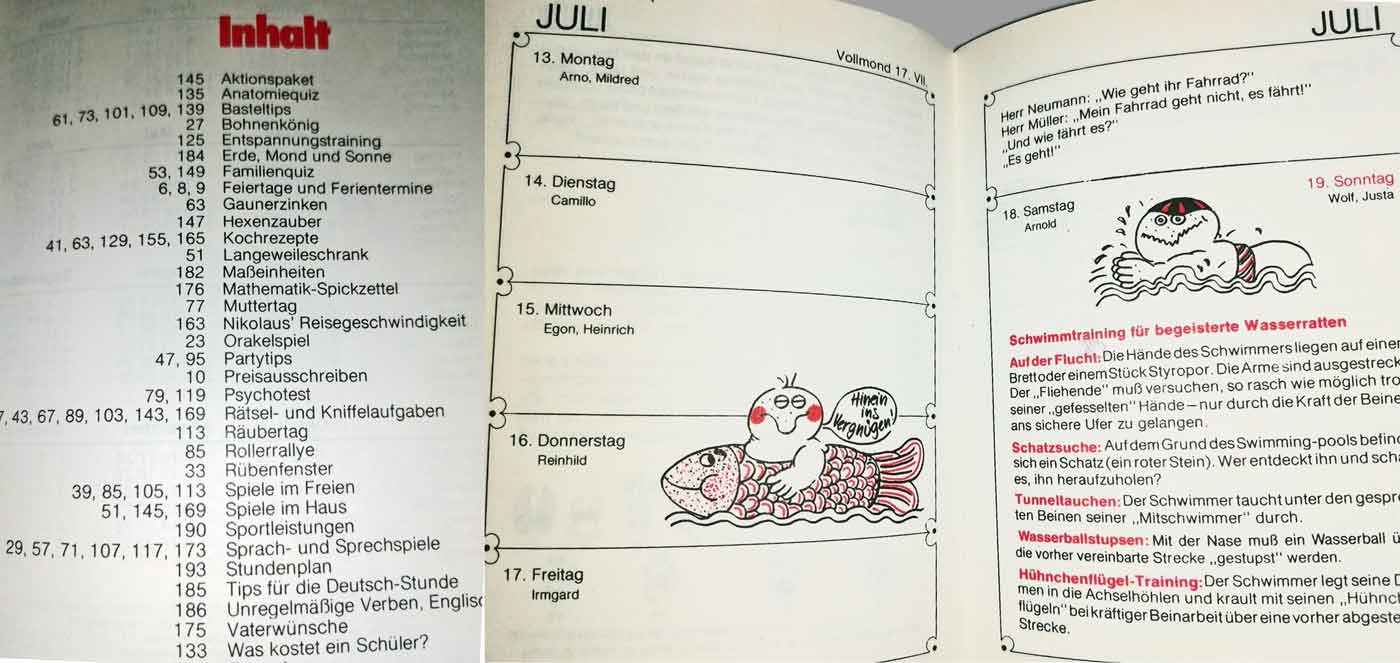 Inhalt
145 Aktionspaket
135 Anatomiequiz
61, 73, 101, 109, 139 Basteltips
27 Bohnenkönig
125 Entspannungstraining
184 Erde, Mond und Sonne
53, 149 Familienquiz
6, 8, 9 Feiertage und Ferientermine
63 Gaunerzinken
147 Hexenzauber
41, 63, 129, 155, 165 Kochrezepte
51 Langeweileschrank
182 Maßeinheiten
176 Mathematik-Spickzettel
77 Muttertag
163 Nikolaus' Reisegeschwindigkeit
23 Orakelspiel
47, 95 Partytips
10 Preisausschreiben
79, 119 Psychotest
7, 43, 67, 89, 103, 143, 169 Rätsel- und Kniffelaufgaben
113 Räubertag
85 Rollerrallye
33 Rübenfenster
39, 85, 105, 113 Spiele im Freien
51, 145, 169 Spiele im Haus
190 Sportleistungen
29, 57, 71, 107, 117, 173 Sprach- und Sprechspiele
193 Stundenplan
185 Tips für die Deutsch-Stunde
186 Unregelmäßige Verben, Englisc
175 Vaterwünsche
133 Was kostet ein Schüler?
JULI
Vollmond 17. VII.
13. Montag
Arno, Mildred
14. Dienstag
Camillo
15. Mittwoch
Egon, Heinrich
Hinein
ins
Vergnügen!
16. Donnerstag
Reinhild
17. Freitag
Irmgard
JULI
Herr Neumann: „Wie geht ihr Fahrrad?"
Herr Müller: „Mein Fahrrad geht nicht, es fährt!"
„Und wie fährt es?"
„Es geht!"
18. Samstag
Arnold
19. Sonntag
Wolf, Justa
Schwimmtraining für begeisterte Wasserratten
Auf der Flucht: Die Hände des Schwimmers liegen auf einer
Brett oder einem Stück Styropor. Die Arme sind ausgestreck
Der „Fliehende" muß versuchen, so rasch wie möglich tro
seiner „gefesselten" Hände – nur durch die Kraft der Beine
ans sichere Ufer zu gelangen.
Schatzsuche: Auf dem Grund des Swimming-pools befind
sich ein Schatz (ein roter Stein). Wer entdeckt ihn und scha
es, ihn heraufzuholen?
Tunnellauchen: Der Schwimmer taucht unter den gespre
ten Beinen seiner „Mitschwimmer" durch.
Wasserballstupsen: Mit der Nase muß ein Wasserball ü
die vorher vereinbarte Strecke „gestupst" werden.
Hühnchenflügel-Training: Der Schwimmer legt seine D
men in die Achselhöhlen und krault mit seinen „Hühnch
flügeln" bei kräftiger Beinarbeit über eine vorher abgeste
Strecke.